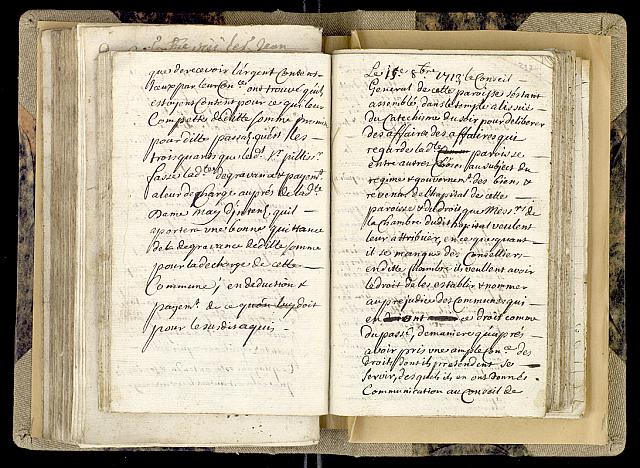 que de recevoir l'argent content
ceux par leur
estoyent content pour ce que leur
Compette de ditte somme
pour ditte passa, qu'est les
trois quarts que led. Sr
fasse lad.te degravance & payemt
a leur decharge aupres de lad.te
Dame may Distens, qu'il
aportera une bonne quittance
de la degravance de ditte somme
pour la decharge de cette
Commune, en deduction &
payemt. de ce qu'on luy doit
pour le susdit aquis.
Le 15e 8bre 1713 le Conseil
General de cette paroisse s'estant
assemblé, dans le temple a l'issue
du Catechisme du soir pour deliberer
des affaires des affaires qui
regarde lad.te paroisse
entre autres choses au subject du
regime & gouvernemt. des biens &
revenus de l'hospital de cette
paroisse & de droit que Messrs. de
la Chambre dudit hospital veulent
leur attribuer, en ce que quant
il se manque des Conselliers
en ditte Chambre ils veullent avoir
le droit de les establir & nommer
au prejudice des Communes qui
en ont ce droit comme
du passé, de maniere qu'apres
avoir pris une ample Conce. des
Droits dont ils pretendent se
servir, desquels ils en ont donné
Communication au Conseil de